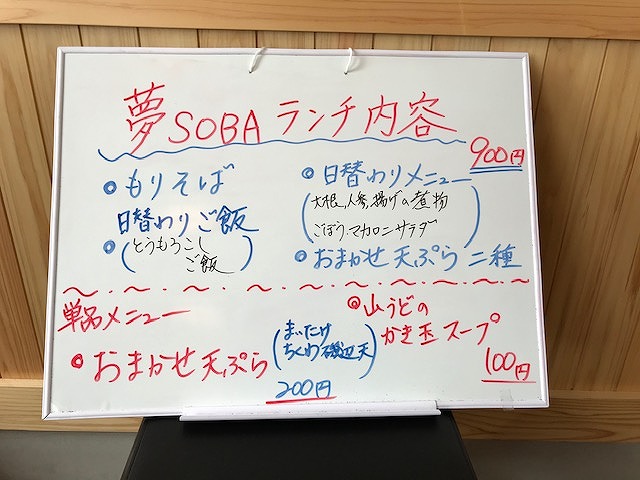 夢SOBAランチ内容
900円
もりそば
日替わりご飯
(とうもろこし
ご飯)
日替わりメニュー
(大根、人参、揚げの煮物
ごぼう、マカロニサラダ)
おまかせ天ぷら二種
単品メニュー
おまかせ天ぷら
(まいたけ
ちくわ磯辺天)
200円
山うどの
かき玉スープ
100円